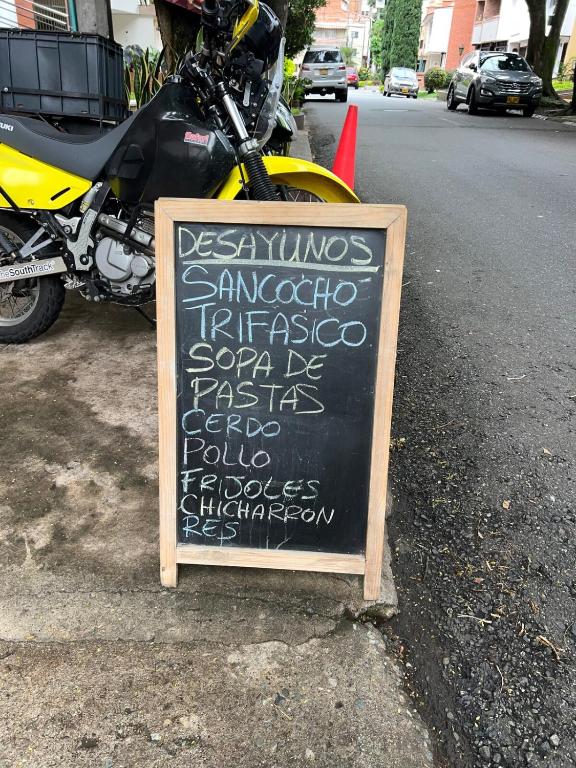 DESAYUNOS
SANCOCHO
TRIFASICO
SOPA DE
PASTAS
CERDO
POLLO
FRIJOLES
CHICHARRON
RES
SUZUKI
theSouthTrack